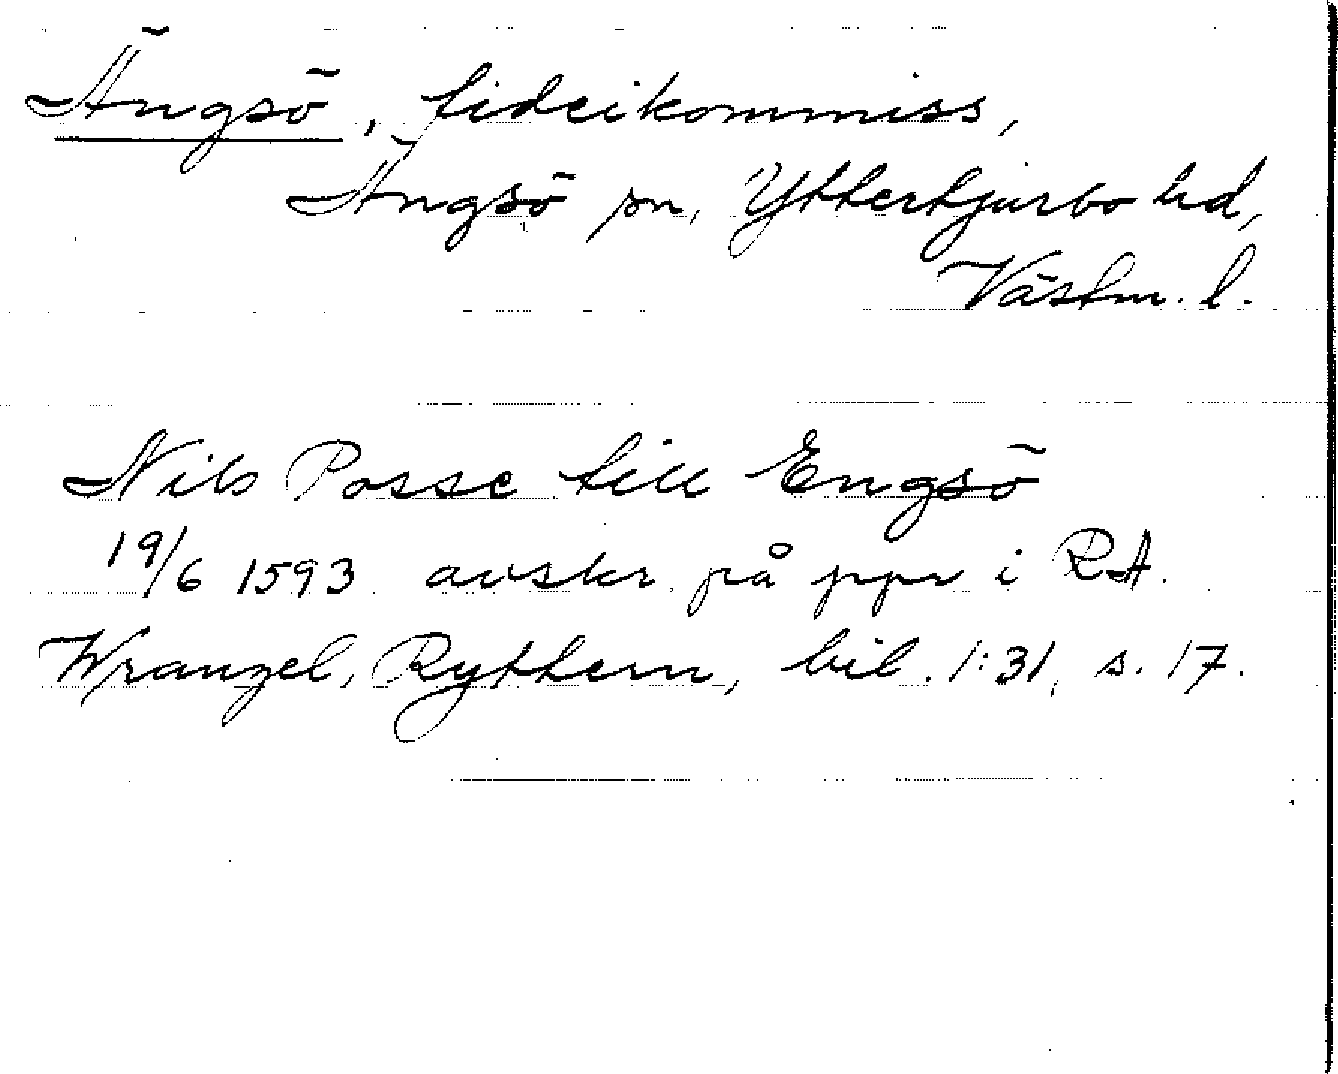 Ängsö, fideikommiss,
Ängsö sn, Yttertjurbo hd,
Västm. l.
Nils Posse till Engsö
19/6 1593 avskr. på ppr i RA.
Wranzel, Ryttern, bil. 1:31, s. 17.